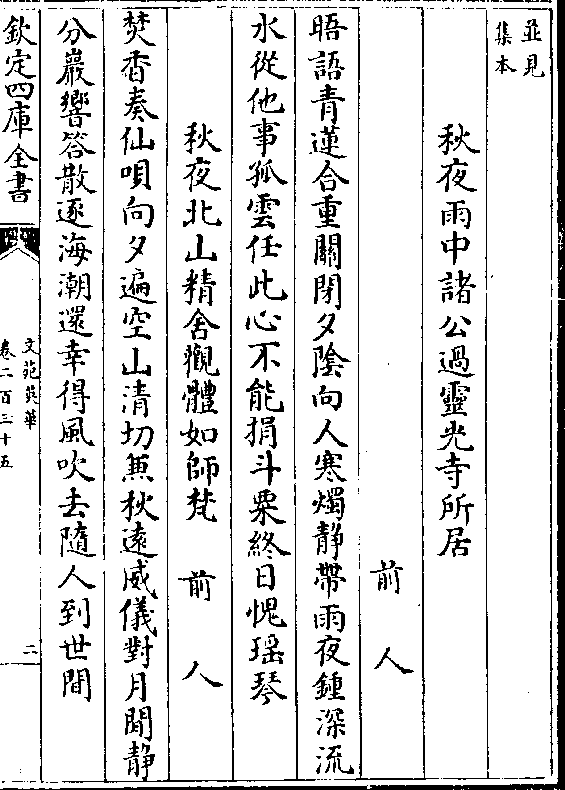 並見
集本
秋夜雨中諸公過靈光寺所居
前人
晤語青蓮合重關閉夕陰向人寒燭靜帶雨夜鍾深流
水從他事孤雲任此心不能捐斗粟終日愧瑶琴
秋夜北山精舍觀體如師梵　前人
焚香奏仙唄向夕遍空山清切兼秋遠威儀對月閒靜
分巖響答散逐海潮還幸得風吹去隨人到世間
欽定四庫全書
文苑英華
卷二百三十五
二